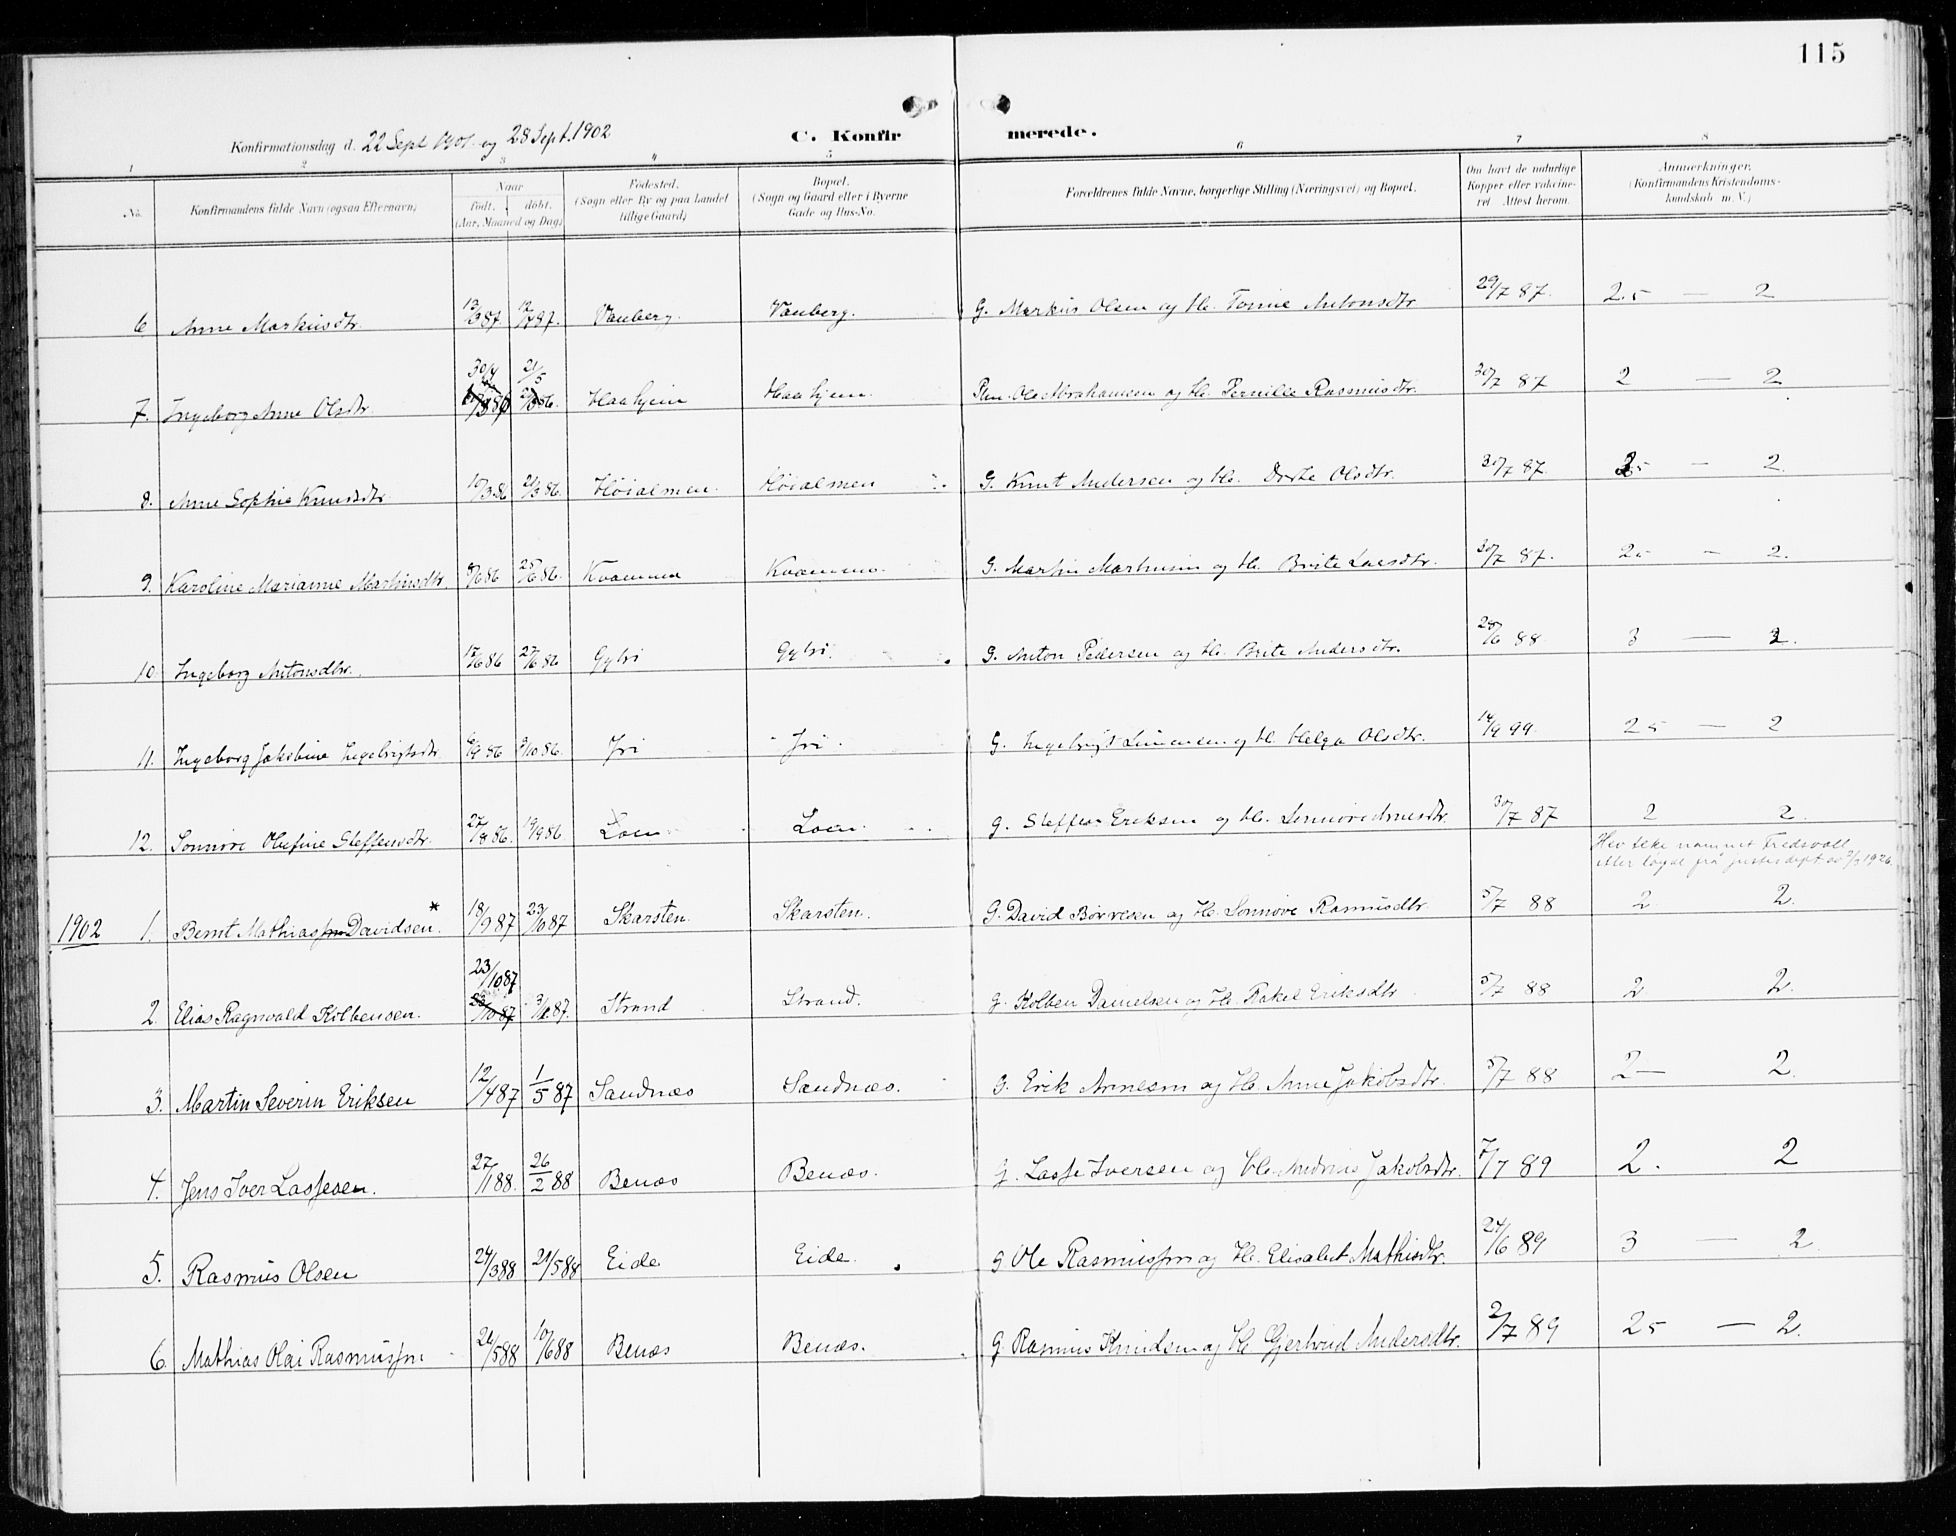 115
Konfirmationsdag d. 22 Sept 1901 og 28 Sept. 1902
C. Konfirmerede.
1 2 3 4 5 6 7 8
No.
Konfirmandens fulde Navn (ogsaa Efternavn)
Naar
født. døbt.
(Aar, Maaned og Dag)
Fødested.
(Sogn eller By og paa Landet
tillige Gaard)
Bopæl.
(Sogn og Gaard eller i Byerne
Gade og Hus-No.
Forældrenes fulde Navne, borgerlige Stilling (Næringsvei) og Bopæl.
Om havt de naturlige
Kopper eller vakcine-
ret Attest herom.
Anmerkninger.
(Konfirmandens Kristendoms-
kundskab m. V.)
6 Anne Markusdtr. Vauberg. Vauberg. G. Markus Olsen og H. Tomine Antonsdtr. 29/7 87. 2.5 — 2
7. Ingeborg Anne Olsdtr 30/4 21/5 Haahjem Haahjem. Ole Abrahamsen og H. Pernille Rasmusdtr. 30/7 87 2 — 2
8. Anne Sophie Knudsdtr 21/3 86. Høialmen. Høialmen G. Knut Andersen og H. Dorte Olsdtr. 30/7 87. 25 — 2.
9. Karoline Marianne Martinsdtr. 8/6 86 25/6 86. Kvamme Kvamme. G. Martin Martinsen og H. Brite Larsdtr. 30/7 87. 25 — 2.
10. Ingeborg Antonsdtr. 12/6 86 27/6 86 Gytri Gytri. G. Anton Pedersen og H. Brite Andersdtr. 28/6 88 3 — 2.
11. Ingeborg Jakobine Ingebrigtsdtr. 3/10 86. Jri Jri. G. Ingebrigt Simonsen og H. Helga Olsdtr. 14/9 99. 25 — 2
12. Sonnøve Olufine Steffensdtr. 27/8 86. 19/9 86 Loen Loen. G. Steffen Eriksen og H. Sonnøve Arnesdtr. 30/7 87 2 2.
Hev teke namnet Fredsvoll
etter løyve frå justisdept av 2/3 1926.
1902 1. Bernt Mathias Davidsen.* 18/9 87 23/10 87 Skarsten. Skarsten. G. David Børresen og H. Sonnøve Rasmusdtr. 5/7 88 2 2.
23/10 87
2. Elias Ragnvald Kolbensen. 23/10 87 87. Strand Strand. G. Kolben Danielsen og H. Rakel Eriksdtr 5/7 88 2 2.
3. Martin Severin Eriksen 12/4 87 1/5 87 Sandnæs Sandnæs. G. Erik Arnesen og H. Anne Jakobsdtr. 5/7 88 2 — 2.
4. Jens Iver Lassesen. 27/1 88. 26/2 88 Benæs Benæs. G. Lasse Iversen og H. Jakobsdtr. 7/7 89 2. 2
5. Rasmus Olsen 24/3 88 21/5 88 Eide Eide. G. Ole Rasmussen og H. Elisabet Mathisdtr. 24/6 89 3 — 2
6. Mathias Olai Rasmussen 21/5 88 10/6 88 Benæs Benæs. G. Rasmus Knudsen og H. Gjertrud Andersdtr. 2/7 89 25 — 2.